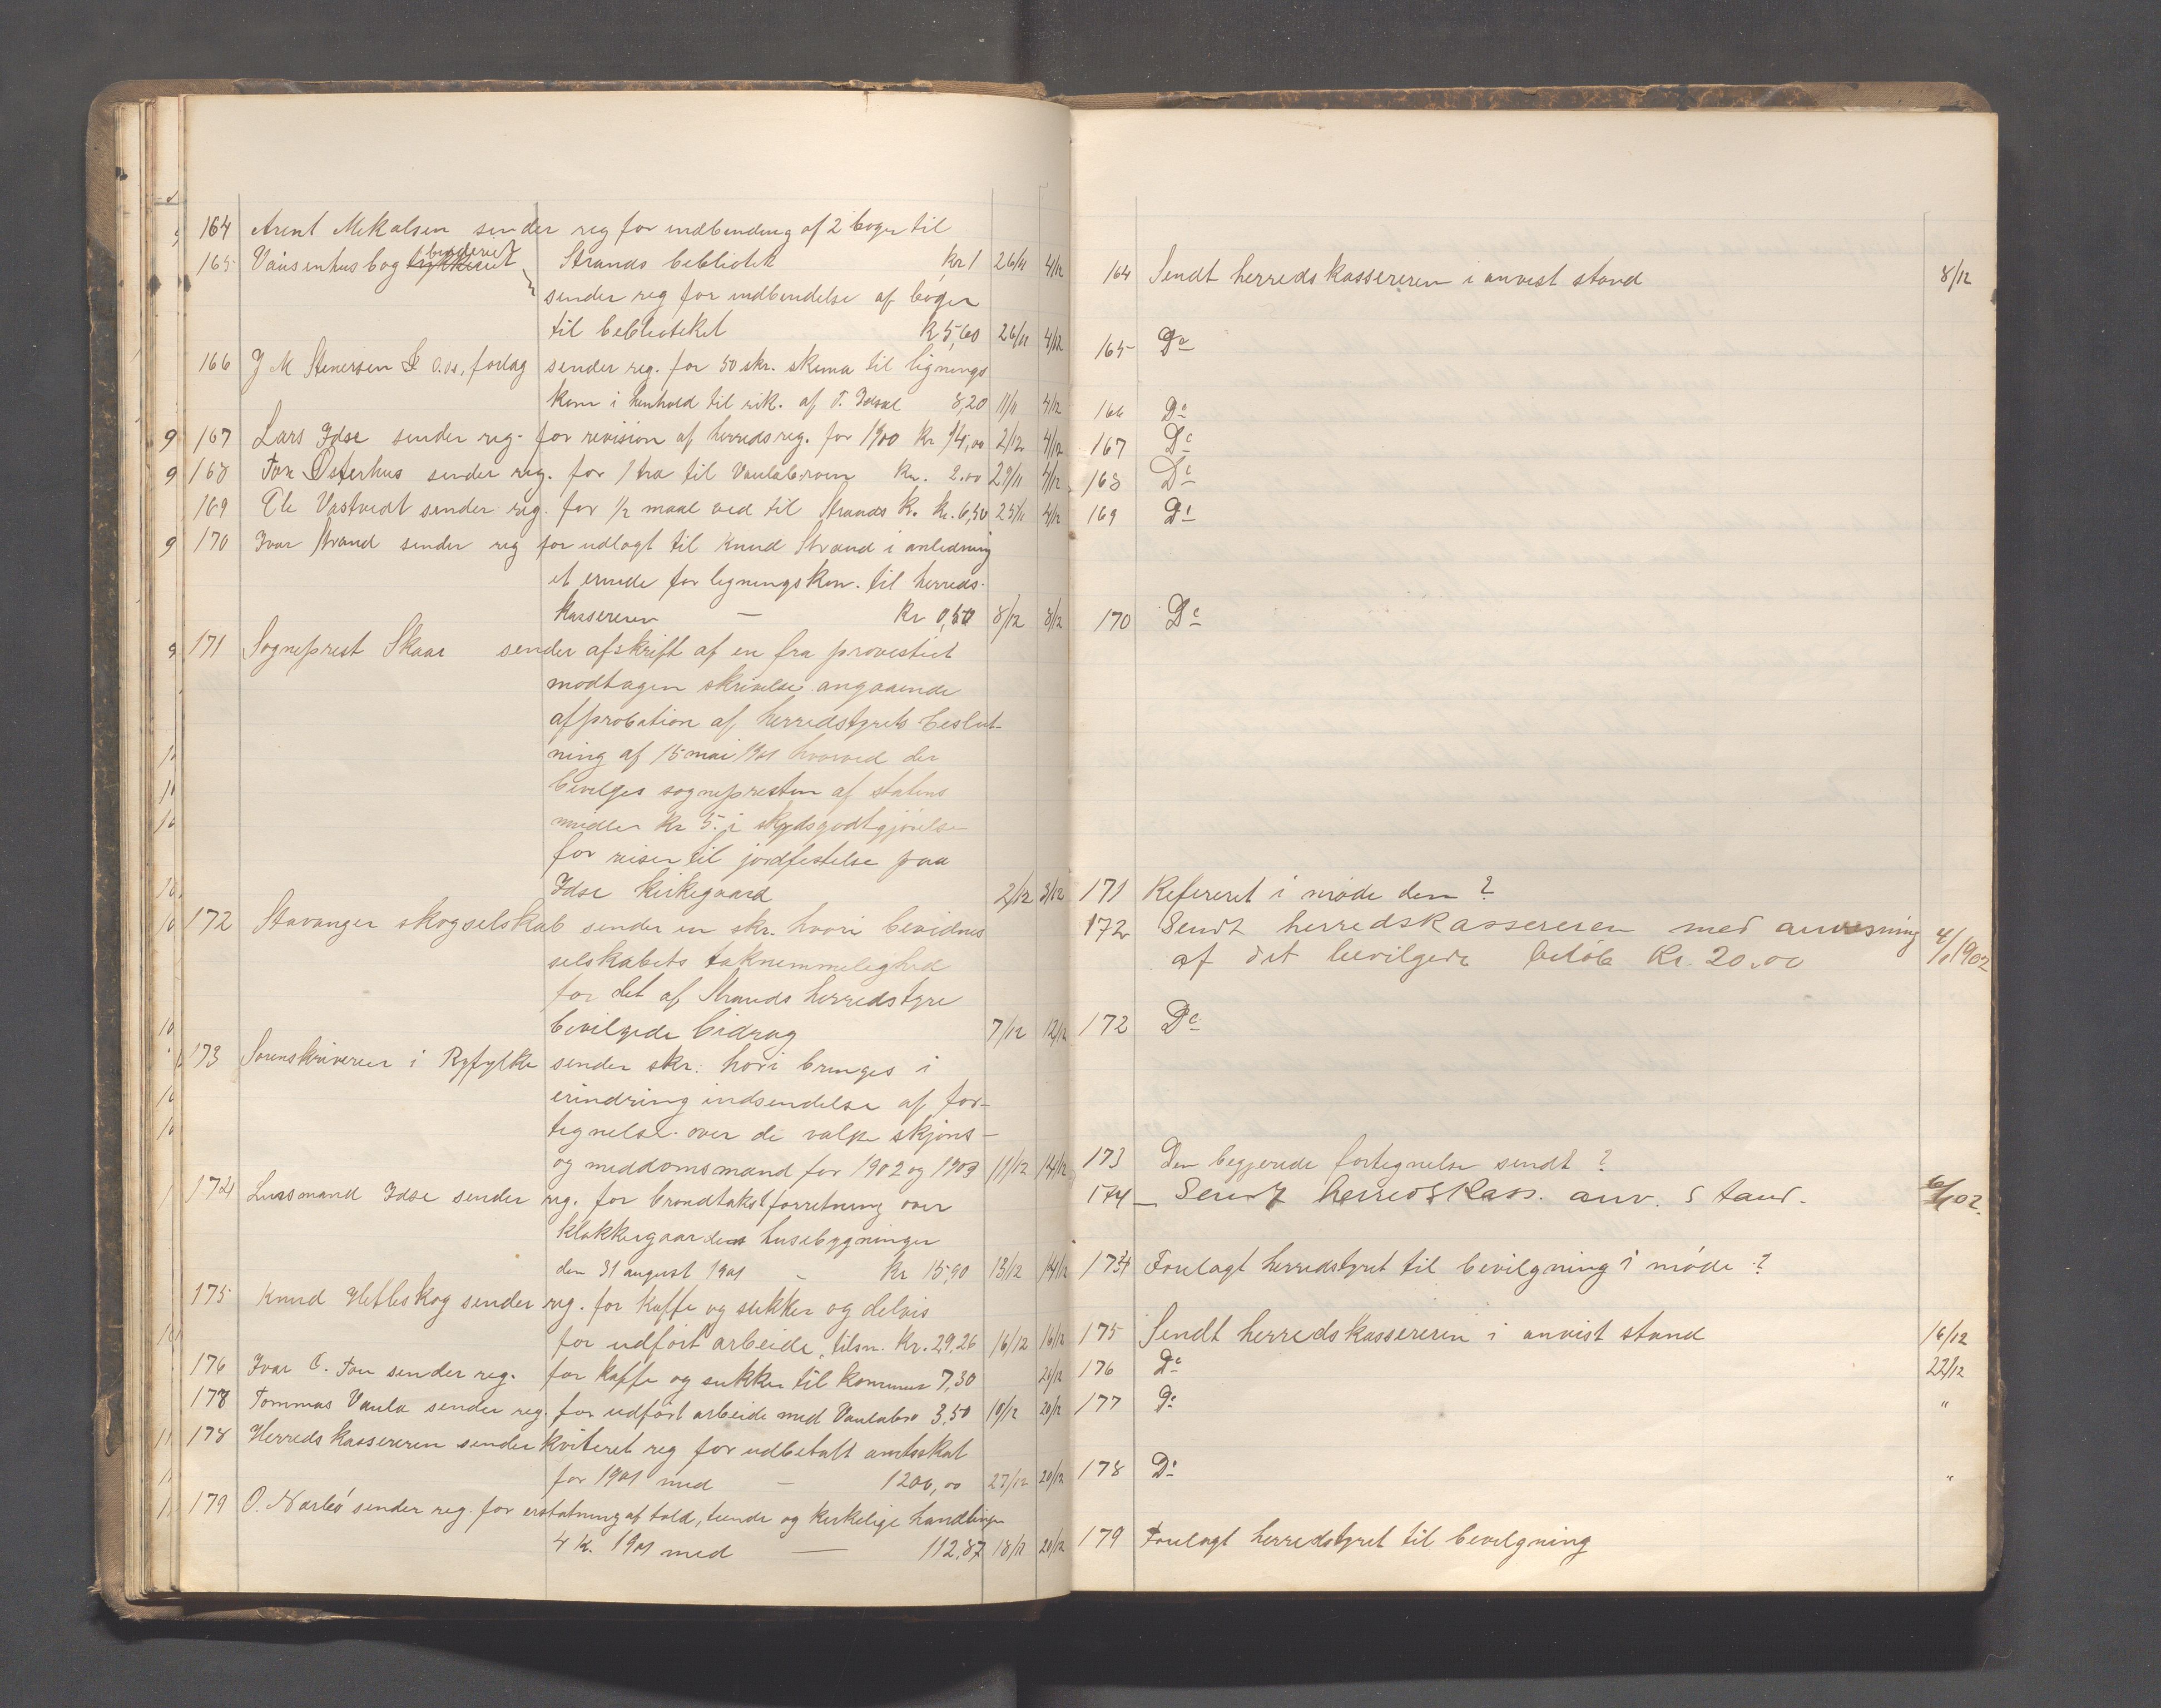 164 Arent Mikalsen sender reg for indbinding af 2 bøger til
165 Vaisenhusbog binderiet Strands bebliotek kr 1 26/11 4/12
sender reg for indbindelse af bøger
til bebliotekel k 5,60 26/11 4/12
166 J M Stenersen & Co.s, forlag sender reg. for 50 skr. skema til lignings
kom i henhold til rik. af T. Idsal 8,20 11/11 4/12
9 167 Lars Idse sender reg. for revision af herredsreg. for 1900 kr 74,00 2/12 4/12
9 168 Tor Østerhus sender reg. for 1 træ til Vaulabroen kr. 2.00 29/11 4/12
169 Ole Vastvedt sender reg. for 1/2 maal ved til Strands k. kr. 6,50 25/11 4/12
9 170 Ivar Strand sender reg for udlagt til Knud Strand i anledning
et erinde for ligningskom. til herreds-
kassereren — kr 0,50 8/12 8/12
9 171 Sogneprest Skaar sender afskrift af en fra provestiet
modtagen skrivelse angaaende
afprobation af herredstyrets beslut-
ning af 15 mai 1901 hvorved der
bevilges sognepresten af statens
midler kr 5. i skydsgodtgjørelse
for reiser til jordfestelse paa
Idse kirkegaard 2/12 3/12
172 Stavanger skogselskab sender en skr. hvori bevidnes
selskabets taknemmelighed
for det af Strands herredstyre
bevilgede bidrag 7/12 12/12
173 Sorenskriveren i Ryfylke sender skr. hvori bringes i
erindring indsendelse af for-
tegnelse over de valgte skjøns-
og meddomsmænd for 1902 og 1903 11/12 14/12
174 Lensmand Idse sender reg. for brandtakstforretning over
klokkergaardens husebygninger
den 31 august 1901 — kr 15,90 13/12 14/12
175 Knud Hetleskog sender reg. for kaffe og sukker og delvis
for udført arbeide, tilsm. kr. 29,26 16/12 16/12
176 Ivar O. Tou sender reg. for kaffe og sukker til kommunen 7,30 20/12
177 Tommas Vaula sender reg. for udført arbeide med Vaulabro 3,50 10/12 20/12
178 Herredskassereren sender kviteret reg for udbetalt amtsskat
for 1901 med — 1200,00 27/12 20/12
179 O. Narbø sender reg. for erstatning af told, tiende og kirkelige handlinger
4 k. 1901 med — 112,87 18/12 20/12
164 Sendt herredskassereren i anvist stand 8/12
165 Do
166 Do
167 Do
168 Do
169 Do
170 Do
171 Refereret i møde den ?
172 Sendt herredskassereren med anvisning 4/1 1902
af det bevilgede beløb kr. 20.00
172 Do
173 Den begjærede fortegnelse sendt ?
174 — Sendt herredskass. anv. stand. 6/1 02.
174 Forelagt herredstyret til bevilgning i møde ?
175 Sendt herredskassereren i anvist stand 16/12
176 Do 22/12
177 Do "
178 Do "
179 Forelagt herredstyret til bevilgning